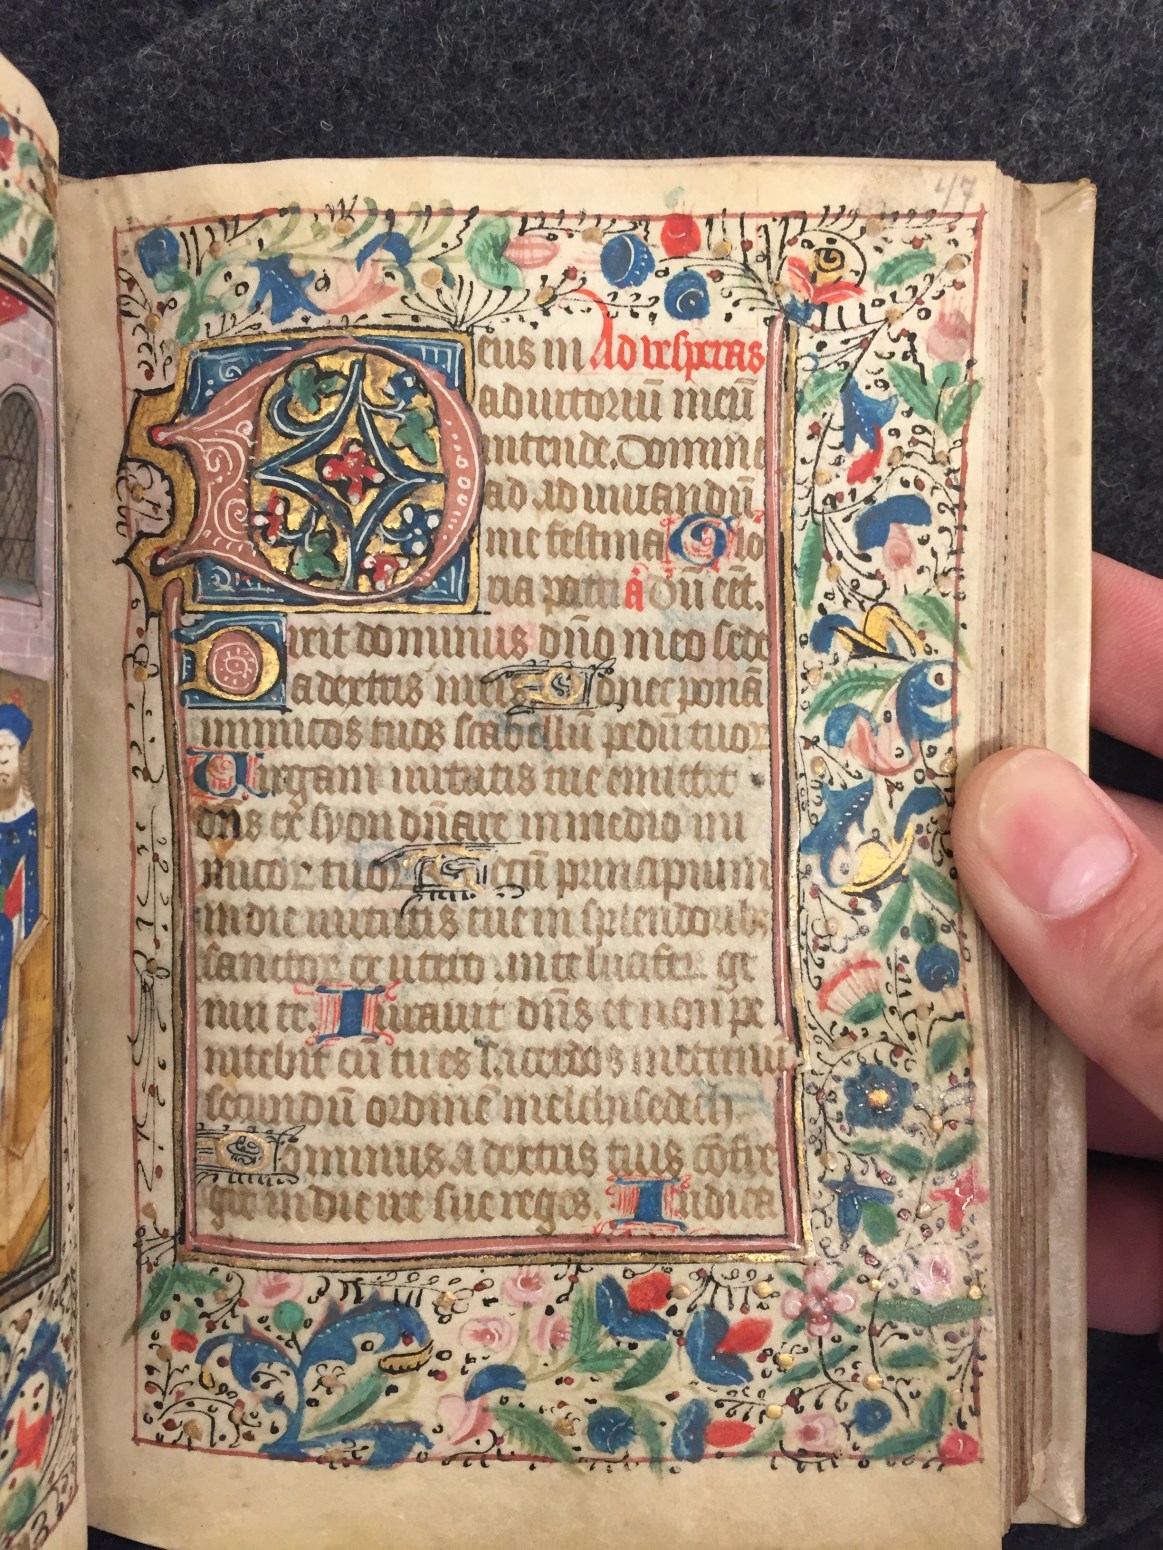 47
Deus in Ad vesperas
adiutoriū meū
intende. Domine
ad adiuuandū
me festina Glo
ria patri ā Dñ cet.
Dixit dominus dño meo sede
a dextris meis Donec ponā
inimicos tuos scabellū pedū tuoꝝ
Uirgam uirtutis tue emittet
dñs ex syon dñare in medio ini
micoꝝ tuoꝝ Tecū principium
in die uirtutis tue in splendoribꝫ
sanctoꝝ ex utero ante luciferū ge
nui te. Iurauit dñs et non pe
nitebit eū tu es sacerdos in eternū
secundū ordinē melchisedech
Dominus a dextris tuis cōfre
git in die ire sue reges. Iudica